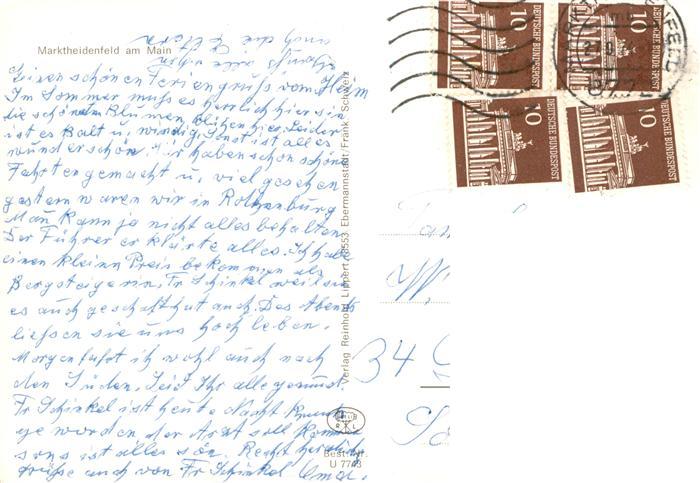 Marktheidenfeld am Main
auch die
alle
Einen schönen Feriengruß vom Heim
Im Sommer muß es herrlich hier sein
die schönen Blumen blühen hier. Leider
ist es kalt u. windig. Sonst ist alles
wunderschön. Wir haben schon schöne
Fahrten gemacht u. viel gesehen
gestern waren wir in Rothenburg
Man kann ja nicht alles behalten
Der Führer erklärte alles. Ich habe
einen kleinn Preis bekommen als
Bergsteigerin. Fr Schinkel weil sie
es auch geschafft hat auch. Des Abends
ließen sie uns hoch leben.
Morgen fährt ich wohl auch nach
den Süden. Seid Ihr alle gesund.
Fr Schinkel ist heute Nacht krank
ge worden der Arzt soll kommen
sons ist alles sön. Recht herzlich
grüße auch von Fr Schinkel Oma.
Verlag Reinhold Lippert, 8553 Ebermannstadt/Fränk. Schweiz
RL
Best.-Nr.
U 7743
10
DEUTSCHE BUNDESPOST
10
DEUTSCHE BUNDESPOST
10
DEUTSCHE BUNDESPOST
10
DEUTSCHE BUNDESPOST
34